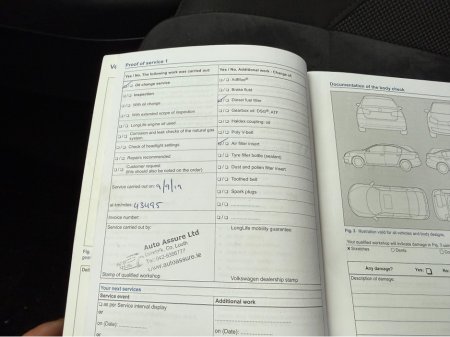 Proof of service 1
Yes / No, The following work was carried out:
Oil change service
Inspection
With oil change
With extended scope of inspection
LongLife engine oil used
Corrosion and leak checks of the natural gas system
Check of headlight settings
Repairs recommended
Customer request
(this should also be noted on the order)
Service carried out on: 9/9/19
at km/miles: 43495
Invoice number:
Service carried out by:
Auto Assure Ltd
Co. Louth
www.autoassure.ie
Stamp of qualified workshop
Yes / No, Additional work - Change of
AdBlue®
Brake fluid
Diesel fuel filter
Gearbox oil: DSG®, ATF
Haldex coupling: oil
Poly V-belt
Air filter insert
Tyre filler bottle (sealant)
Dust and pollen filter insert
Toothed belt
Spark plugs
LongLife mobility guarantee:
Volkswagen dealership stamp
Your next services
Service event
as per Service interval display
or
on (Date):
or
Additional work
on (Date):
or
Documentation of the body check
Fig. 3 Illustration valid for all vehicles and body designs.
Your qualified workshop will indicate damage in Fig. 3
Scratches
Dents
Any damage?
Yes:
Description of damage: